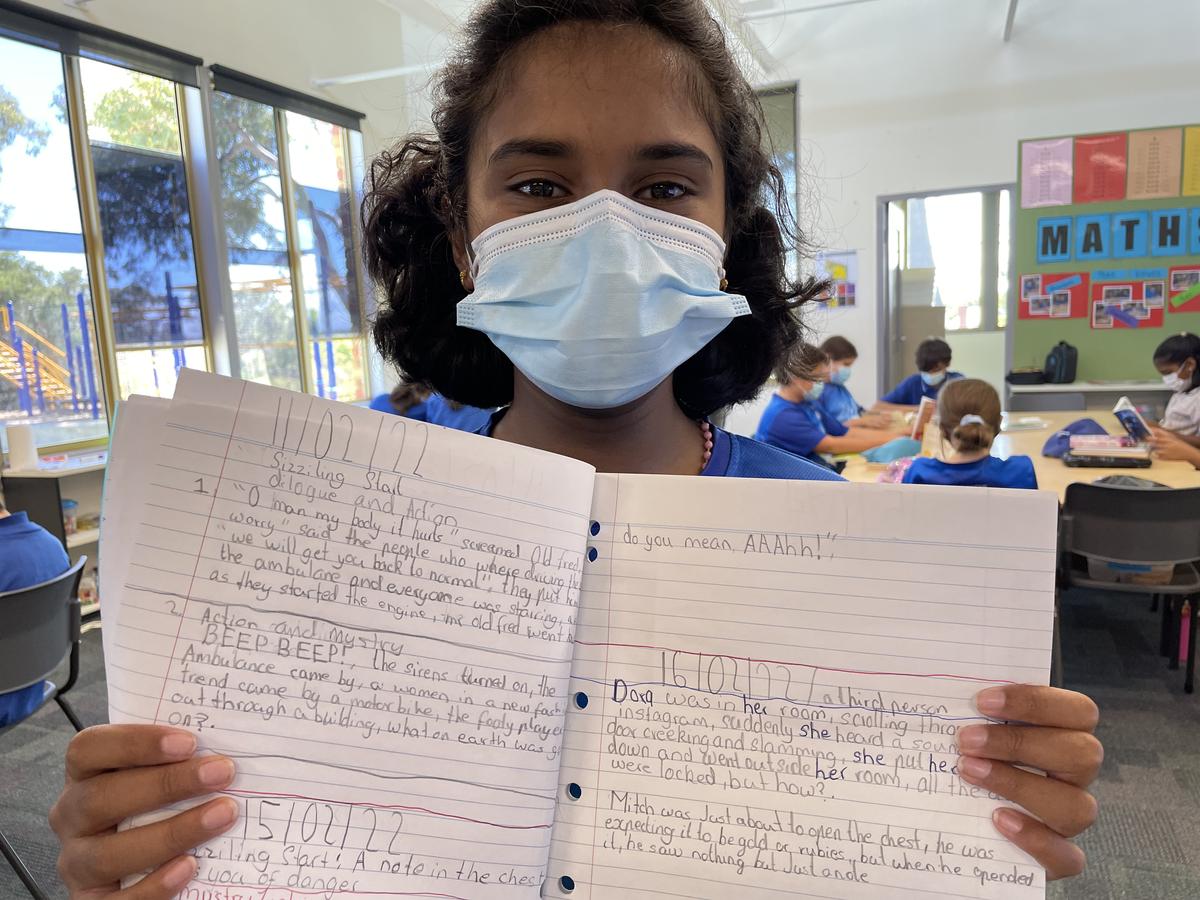 11/02/22
Sizziling Start
dilogue and Action
1 "O man my body it hurts" screamed Old fred,
worry" said the people who where driving the
"we will get you back to normal", they put him
the ambulane and everyone was stairing, a
as they started the engine, old fred went
2. Action and mystry
BEEP BEEP!, the sirens turned on, the
Ambulance came by, a women in a new fach
trend came by a motor bike, the footy player
out through a building, what on earth was g
on?.
15/02/22
ziling Start! A note in the chest
you of danger
do you mean, AAAhh!",
16/02/22 / a third person
Dora was in her room, scrolling throu
instagram, suddenly she heard a soun
door creeking and slamming, she put her
down and went outside her room, all the
were locked, but how?.
Mitch was Just about to open the chest, he was
expecting it to be gold or rubies, but when he opended
it, he saw nothing but Just a note
MATHS